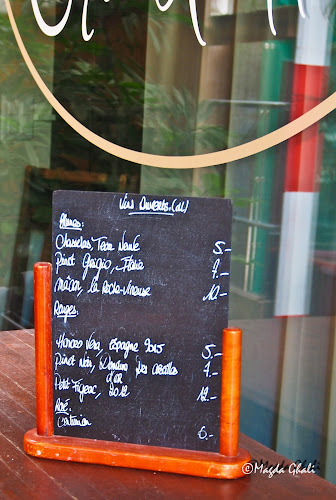 Vins Ouverts (dl)
Blancs:
Chasselas Terre Vante 5.-
Pinot Grigio, Italie 7.-
Mâcon, la Roche-Vineuse 10.-
Rouges:
Honoro Vera, Espagne 2015 5.-
Pinot Noir, Domaine des 7.-
d'or
Petit Figeac, 2012 12.-
Rosé
6.-
©Magda Ghali